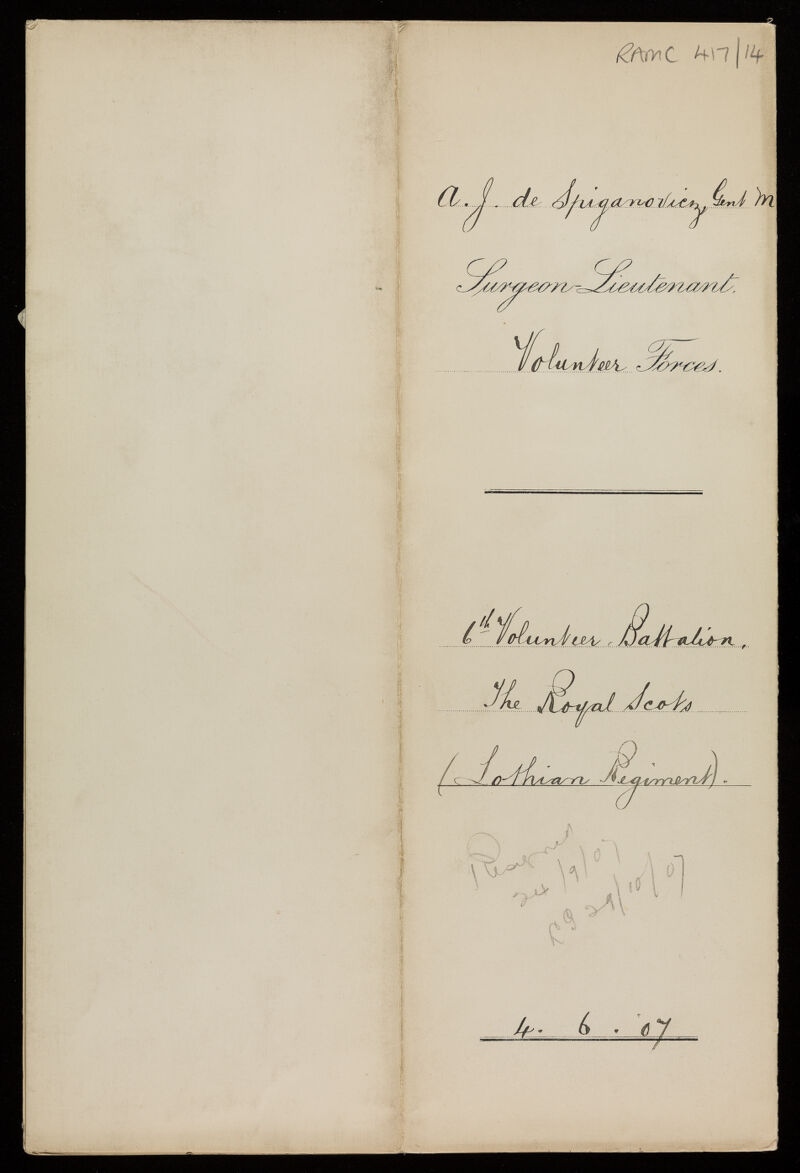 RAMC 417/14
A. J. de Spiganovicz, Gent M
Surgeon-Lieutenant.
Volunteer Forces.
6th Volunteer Battalion,
The Royal Scots
(Lothian Regiment).
Resigned
24/9/07
29/10/07
4. 6. 07